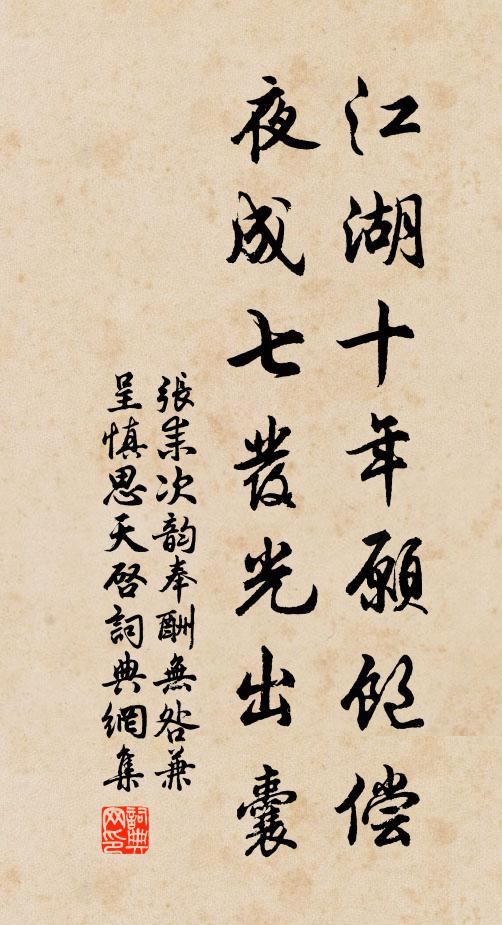 江湖十年願飽償
夜成七發光出囊
張耒次韵奉酬無咎兼
呈慎思天啓詞典網集
詞典网印